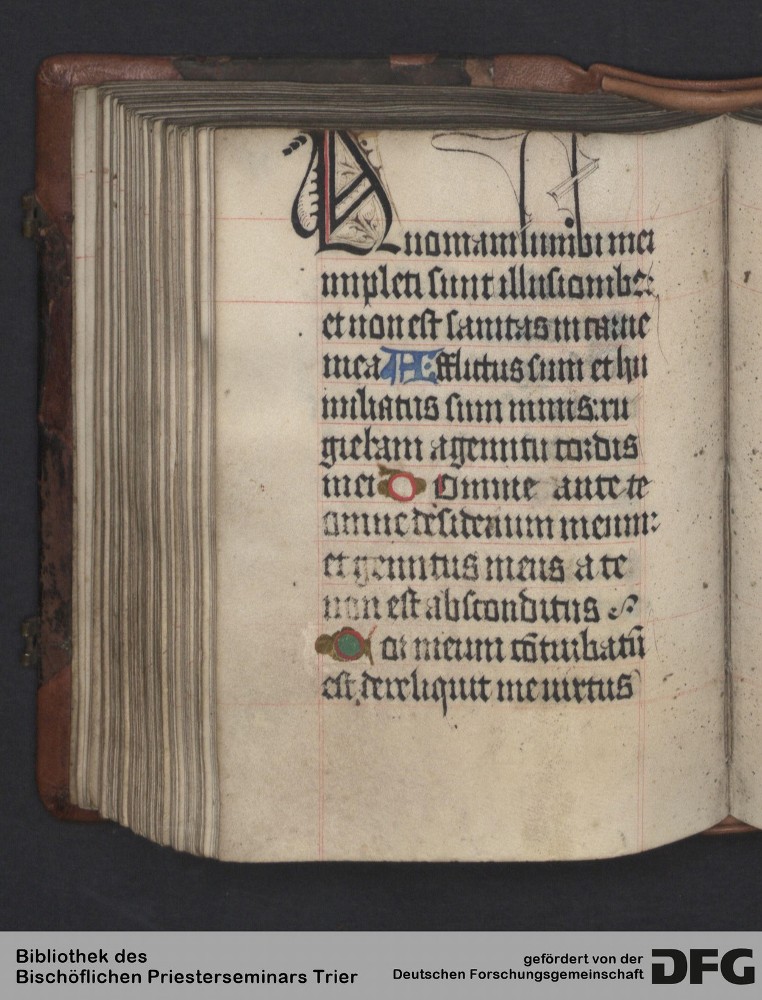 Quoniam lumbi mei
impleti sunt illusionibꝫ:
et non est sanitas in carne
mea Afflictus sum et hu
miliatus sum nimis: ru
giebam a gemitu cordis
mei Domine ante te
omne desiderium meum:
et gemitus meus a te
non est absconditus
Cor meum cōturbatū
est dereliquit me virtus
Bibliothek des
Bischöflichen Priesterseminars Trier
gefördert von der
Deutschen Forschungsgemeinschaft
DFG